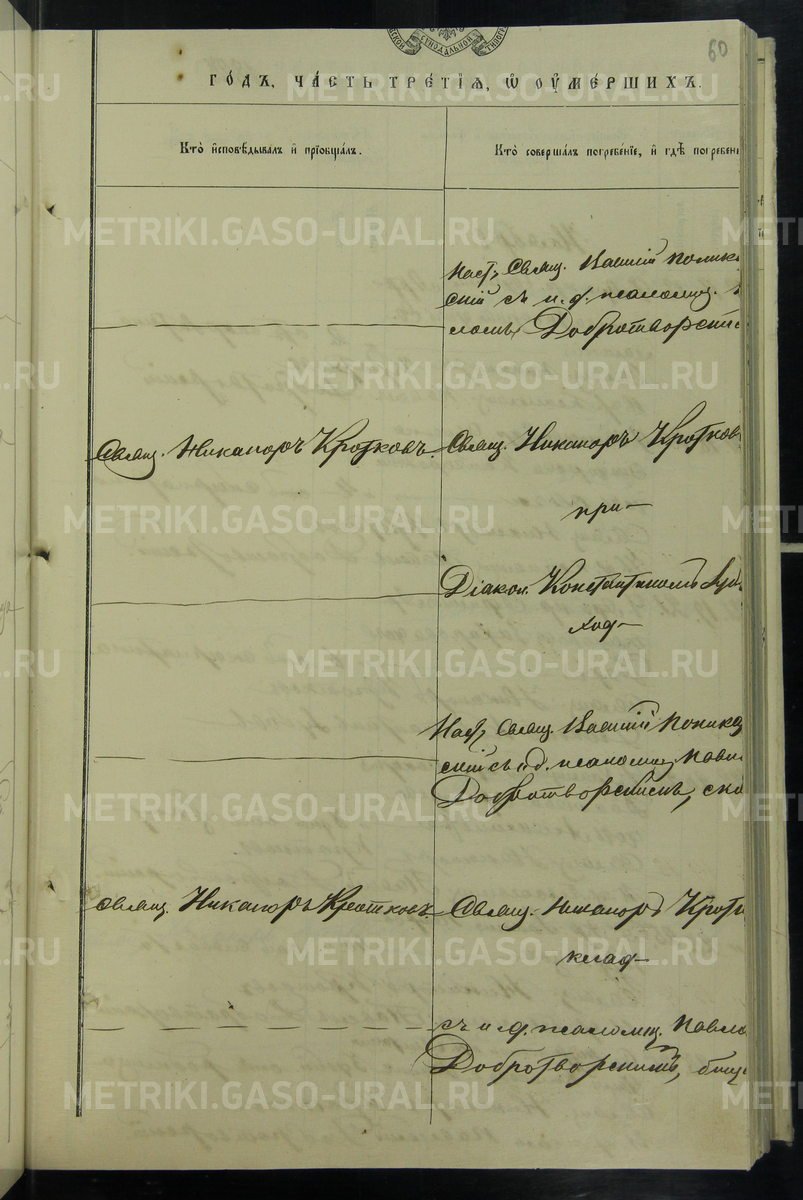 60
СѴНОДАЛЬНОЙ
ГО́ДЪ, ЧА́СТЬ ТРЕ́ТІѦ, Ѽ ОУ҆МЕ́РШИХЪ.
Кто̀ и҆сповѣ́дывалъ и҆ прїобща́лъ.
Кто̀ соверша́лъ погребе́нїе, и҆ гдѣ̀ погребен
Наст. Свящ. Василій Поник
скій съ и. д. псаломщ.
ломъ Добротворски
Свящ. Никаноръ Кротковъ.
Свящ. Никаноръ Кротков
при-
Діакон. Константиномъ
ход-
Наст. Свящ. Василій Поника
скій съ и.д. псаломщ. Павл
Добротворскимъ,
Свящ. Никаноръ Кротковъ
Свящ. Никаноръ Кротк
клад-
съ и. д. псаломщ. Павло
Добротворскимъ,
METRIKI.GASO-URAL.RU